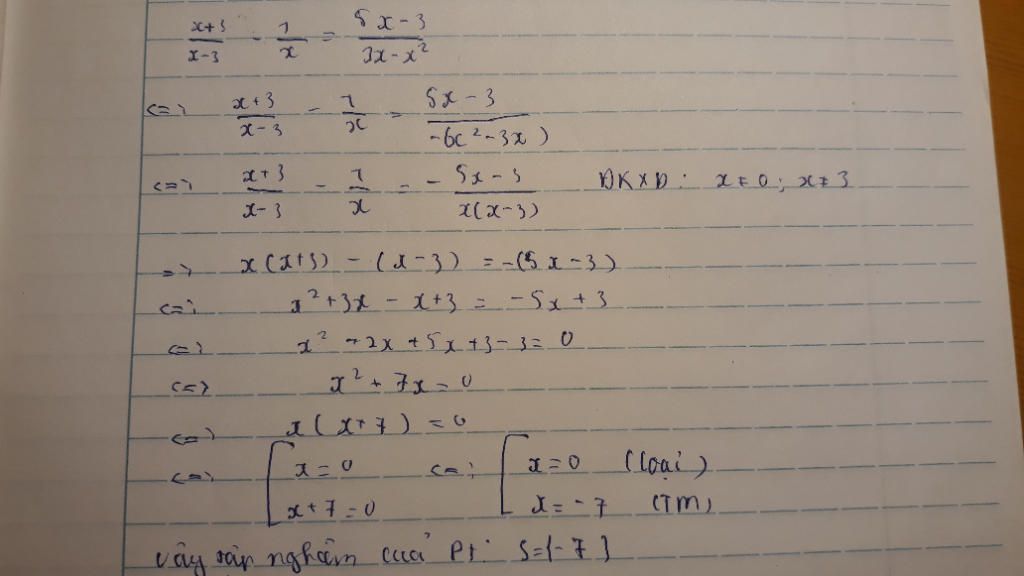 x+3/x-3 - 1/x = 5x-3/3x-x²
<=> x+3/x-3 - 1/x = 5x-3/-(x²-3x)
<=> x+3/x-3 - 1/x = - 5x-3/x(x-3) ĐKXĐ: x≠0; x≠3
=> x(x+3) - (x-3) = -(5x-3)
<=> x²+3x - x+3 = -5x+3
<=> x² +2x +5x +3-3= 0
<=> x² + 7x = 0
<=> x(x+7) = 0
<=> [ x=0 <=> [ x=0 (loại)
x+7=0 x=-7 (TM)
Vậy nghiệm của Pt: S={-7}